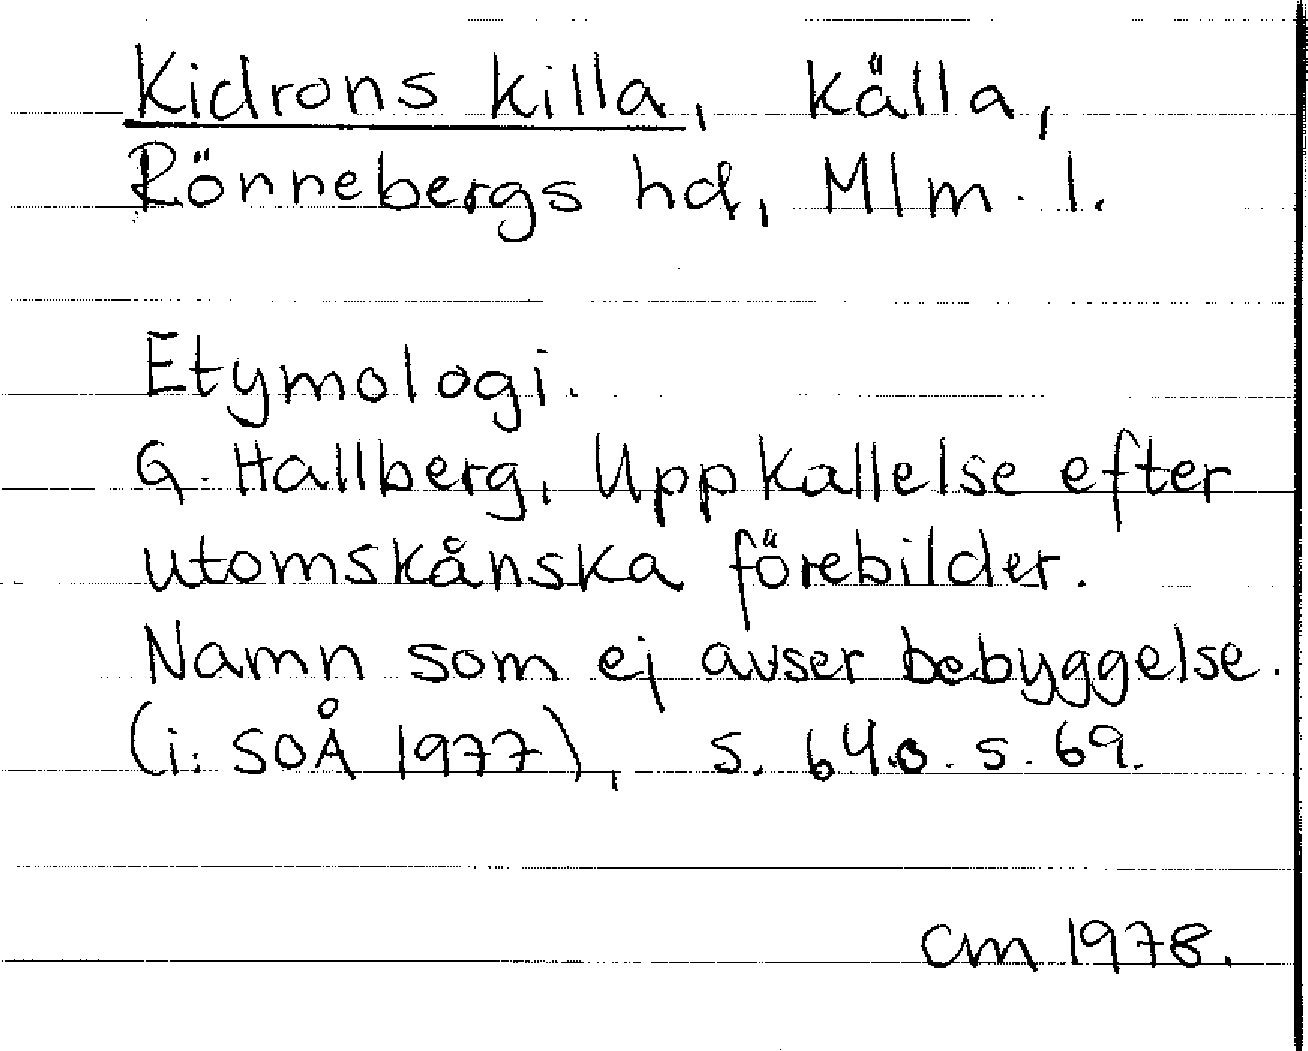 Kidrons killa, källa,
Rönnebergs hd, Mlm. l.
Etymologi.
G. Hallberg, Uppkallelse efter
utomskånska förebilder.
Namn som ej avser bebyggelse.
(i: SOÅ 1977), s. 64 o. s. 69.
cm 1978.